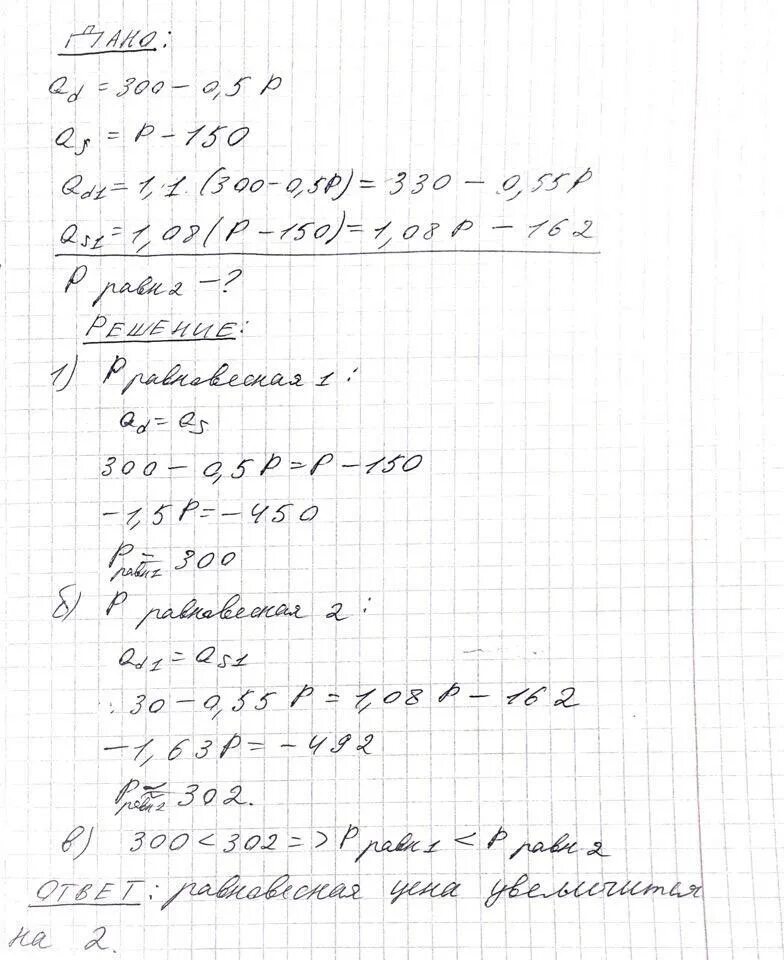 ДАНО:
Qd = 300 - 0,5 P
Qs = P - 150
Qd1 = 1,1. (300 - 0,5P) = 330 - 0,55P
Qs1 = 1,08(P - 150) = 1,08P - 162
P равн2 - ?
РЕШЕНИЕ:
1) P равновесная 1:
Qd = Qs
300 - 0,5P = P - 150
-1,5P = -450
P равн1 = 300
б) P равновесная 2:
Qd1 = Qs1
30 - 0,55 P = 1,08P - 162
-1,63P = -492
P равн2 ≈ 302.
в) 300 < 302 => P равн1 < P равн2
ОТВЕТ: равновесная цена увеличится
на 2.